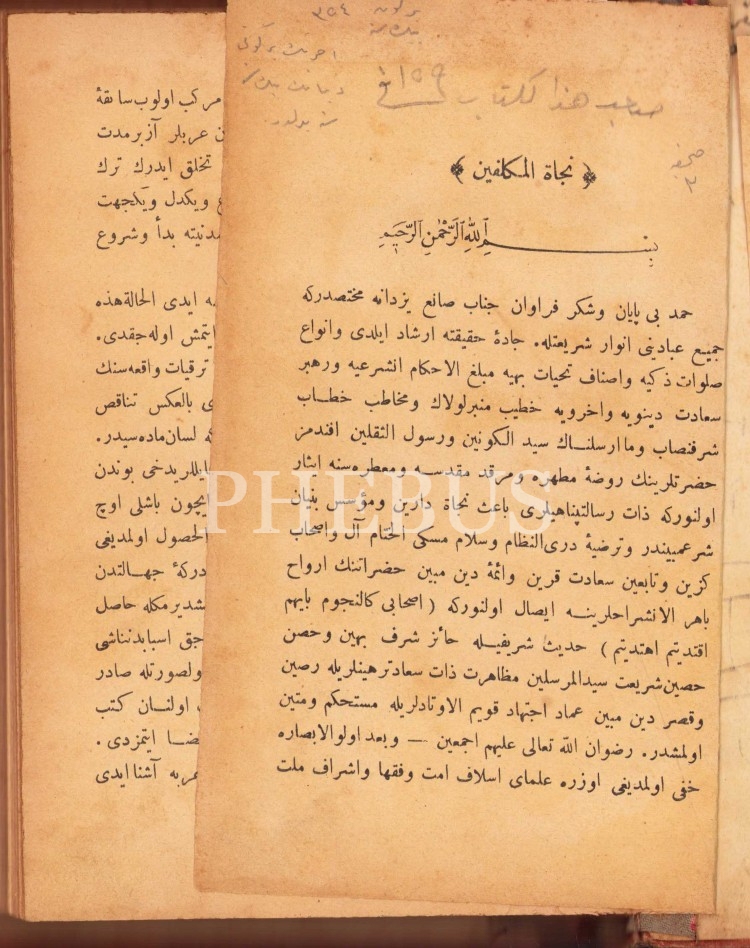 صاحب هذا الكتاب
صحيفه
٣
﴿ نجاة المكلفين ﴾
بسم الله الرحمن الرحيم
حمد بی پایان وشکر فراوان جناب صانع یزدانه مختصدرکه
جمیع عبادینی انوار شریعتله. جادهٔ حقیقته ارشاد ایلدی وانواع
صلوات ذکیه واصناف تحیات بهیه مبلغ الاحکام الشرعیه ورهبر
سعادت دینویه واخرویه خطیب منبرلولاك ومخاطب خطاب
شرفنصاب وما ارسلناك سید الکونین ورسول الثقلین افندمز
حضرتلرینك روضهٔ مطهره ومرقد مقدسه ومعطره سنه ایثار
اولنورکه ذات رسالتپناهیلری باعث نجاة دارین ومؤسس بنیان
شرعمبیندر وترضیهٔ دری النظام وسلام مسکی الختام آل واصحاب
کزین وتابعین سعادت قرین وائمهٔ دین مبین حضراتنك ارواح
باهر الانشراحلرینه ایصال اولنورکه ( اصحابی کالنجوم بایهم
اقتدیتم اهتدیتم ) حدیث شریفیله حائز شرف بهین وحصن
حصین شریعت سیدالمرسلین مظاهرت ذات سعادترهینلریله رصین
وقصر دین مبین عماد اجتهاد قویم الاوتادلریله مستحکم ومتین
اولمشدر. رضوان الله تعالی علیهم اجمعین — وبعد اولوالابصاره
خفی اولمدیغی اوزره علمای اسلاف امت وفقها واشراف ملت
مرکب اولوب سابقهٔ
عربلر آز بر مدت
تخلق ایدرك ترك
ویکدل ویکجهت
مدنیته بدأ وشروع
ایدی الحالة هذه
ایتمش اوله جقدی.
ترقیات واقعه سنك
بالعکس تناقص
لسان ماده سیدر.
بوندن
ایچون باشلی اوچ
الحصول اولمدیغی
درکهٔ جهالتدن
حاصل
جق اسبابدنناشی
ولصورتله صادر
اولنان کتب
ایتمزدی.
عربیه آشنا ایدی
PHEBUS